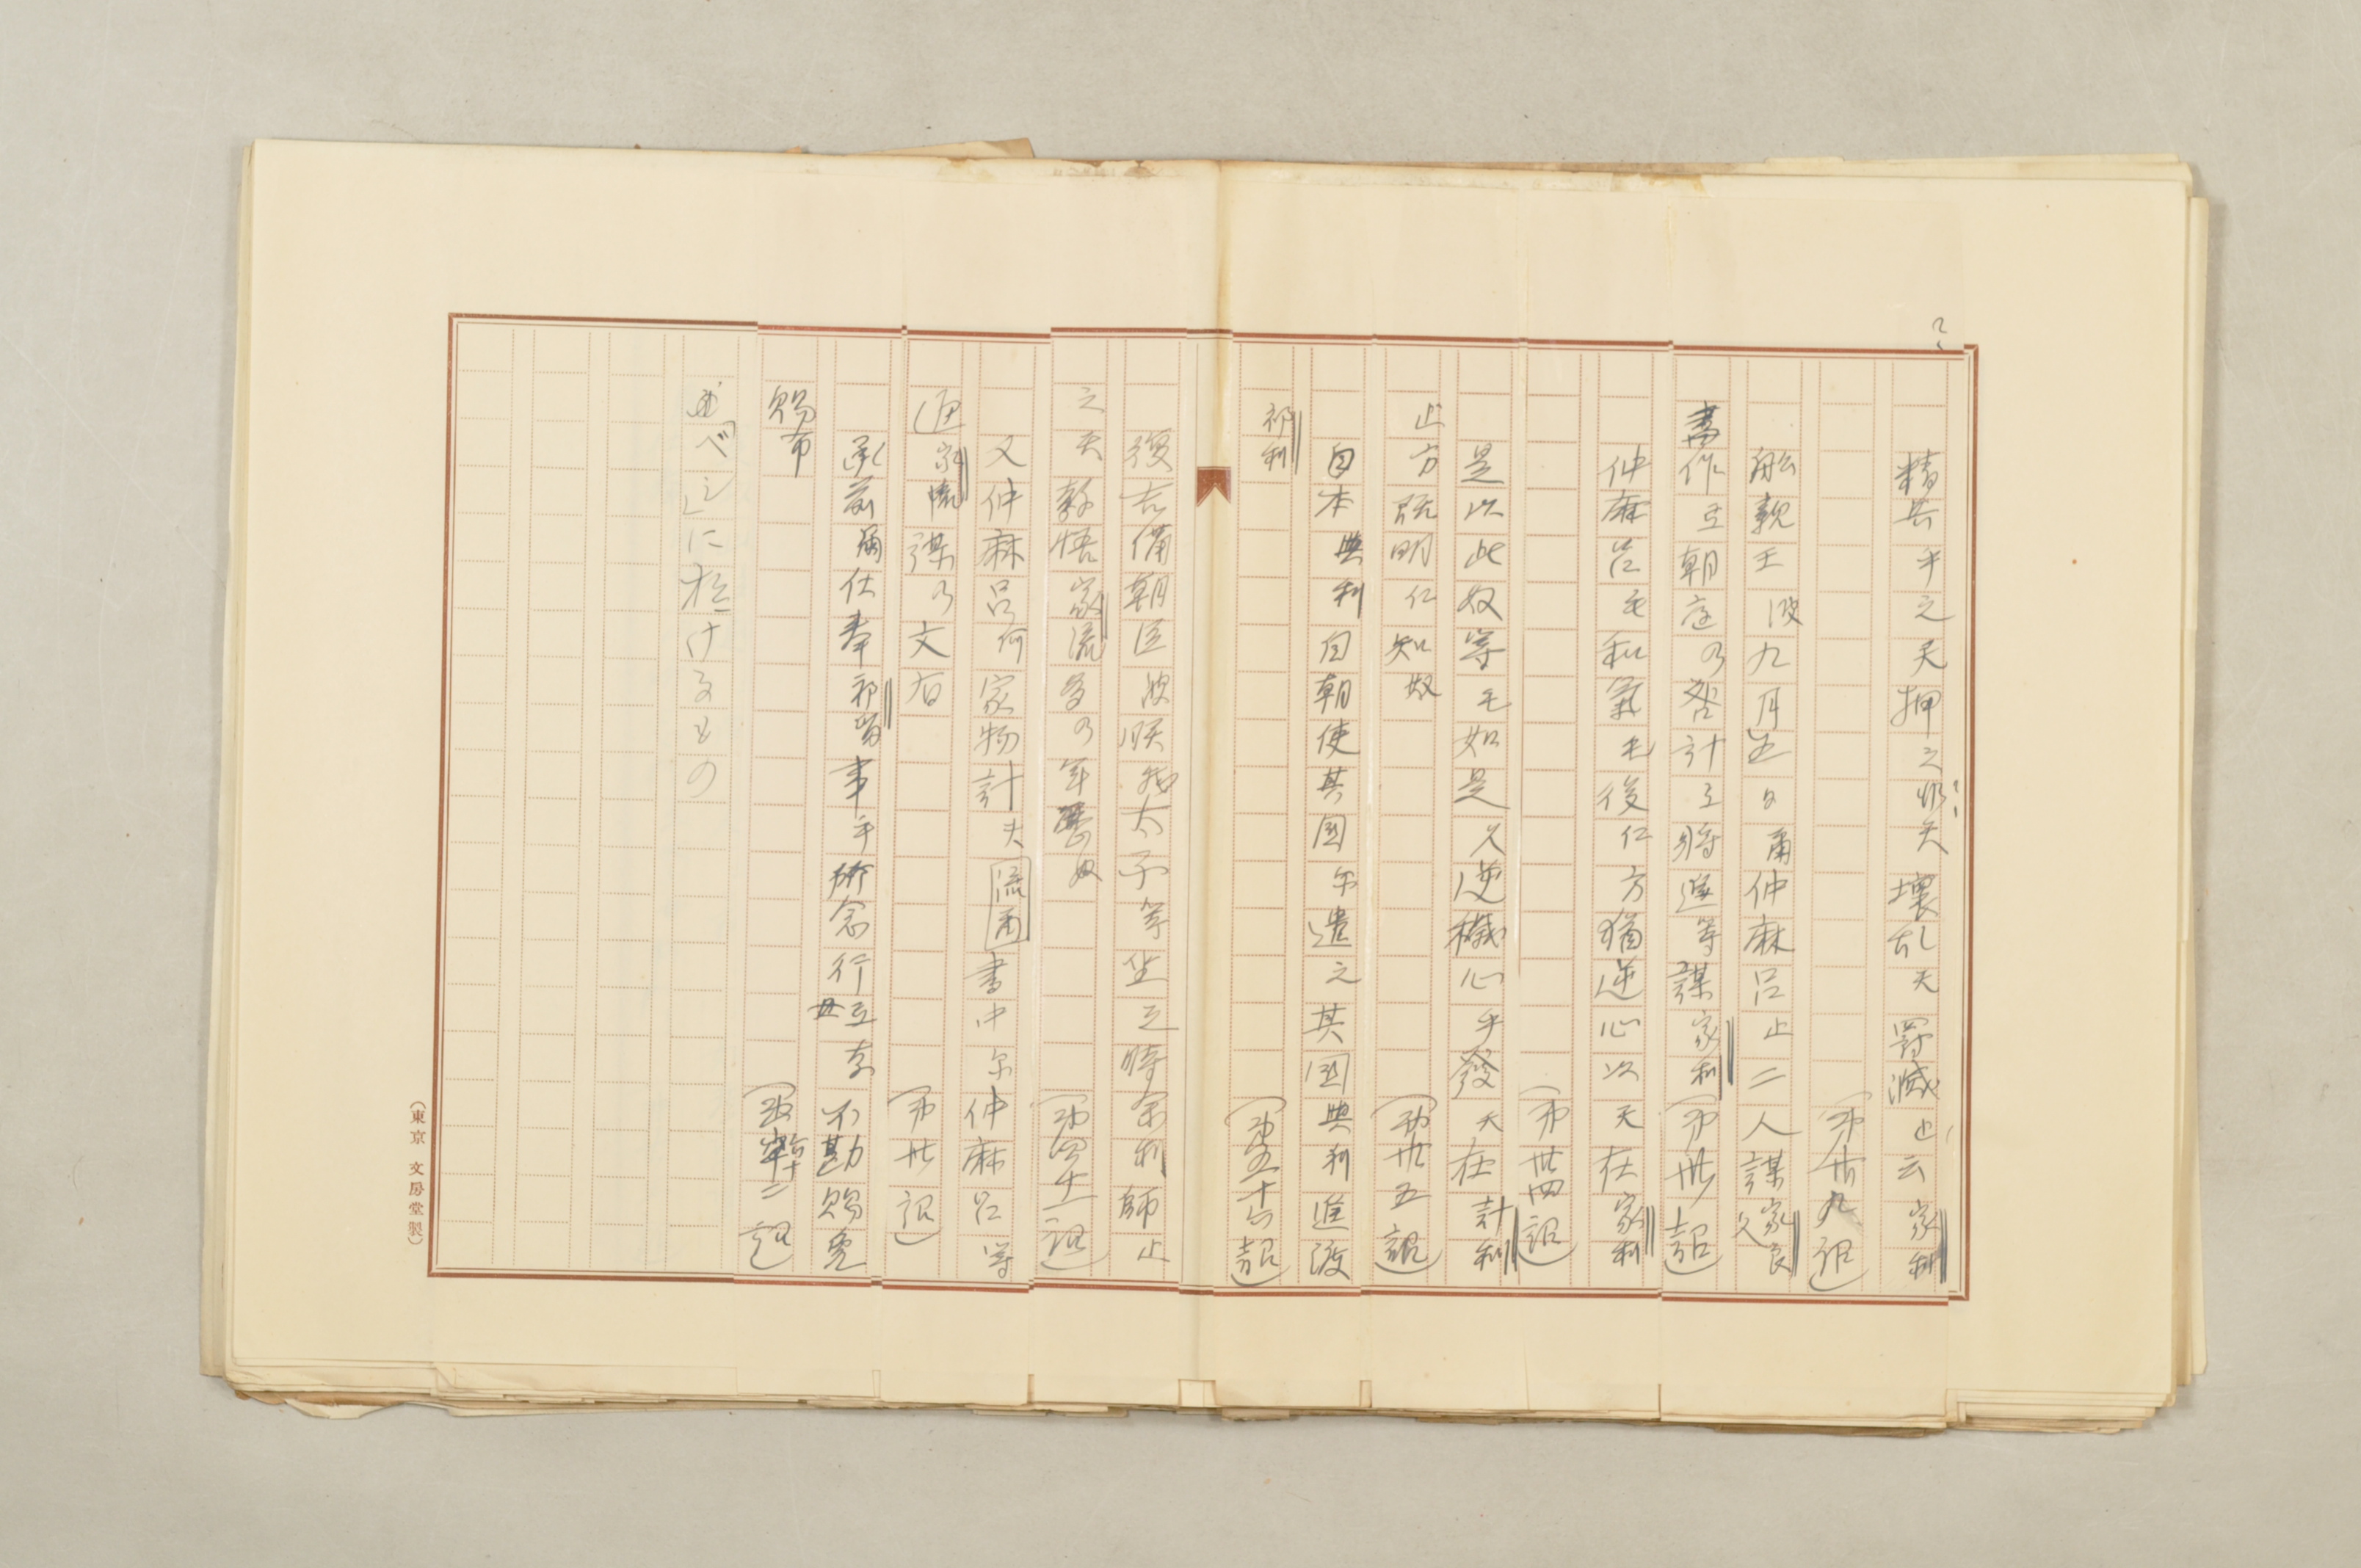 精兵乎之天押之非天壊乱天罸滅止云家利
(第廿九詔)
船親王波九月五日爾仲麻呂止二人謀家良久
書作弖朝庭乃咎計弖将進等謀家利(第卅詔)
仲麻呂毛和氣毛後仁方猶逆心以天在家利
(第卅四詔)
是以此奴等毛如是久逆穢心乎發天在計利
止方既明仁知奴(第卅五詔)
自本與利自朝使其国尓遣之其国與利進渡
祁利(第五十六詔)
復吉備朝臣波朕我太子等坐之時余利師止
之天教悟家流多乃年歴奴(第四十一詔)
又仲麻呂何家物計夫流爾書中尓仲麻呂等
通家流謀乃文有(第卅詔)
承前爾仕奉祁留事乎所念行弖奈不勘賜免
賜布(第六十二詔)
虫「べし」に於けるもの
(東京 文房堂製)